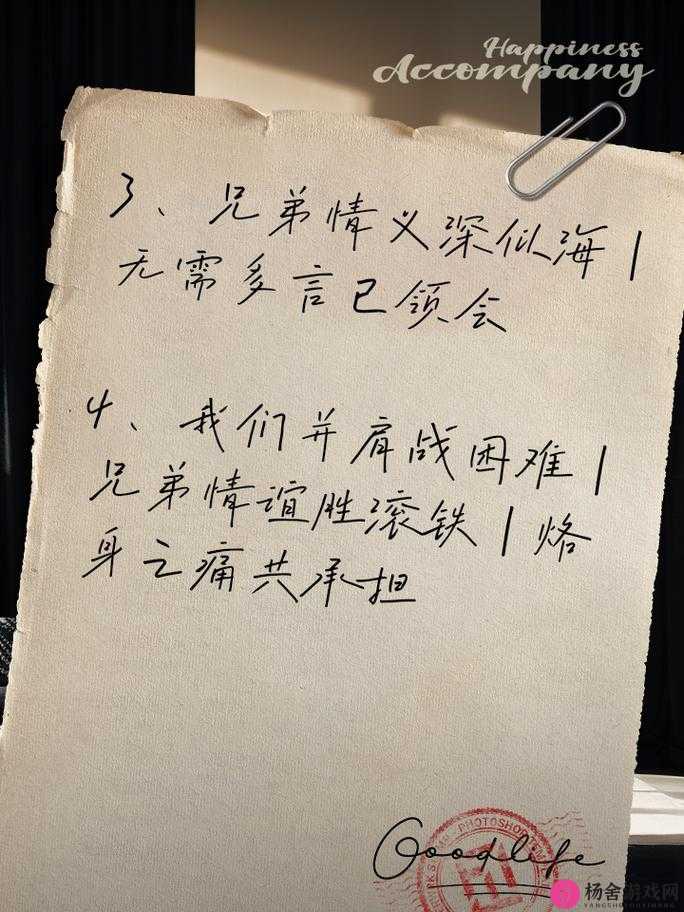 Happiness
Accompany
3、兄弟情义深似海|
无需多言已领会
4、我们并肩战困难|
兄弟情谊胜滚铁|烙
身之痛共承担
PHOTOSHOP
Goodlife
杨舍游戏网
YANGSHEYOUXIWANG